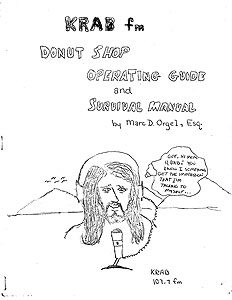 KRAB fm
DONUT SHOP
OPERATING GUIDE
and
SURVIVAL MANUAL
by Marc D. Orgel, Esq.
YOU
KNOW I SOMETIMES
GET THE IMPRESSION
THAT I'M
TALKING TO
MYSELF...
KRAB
107.7 fm